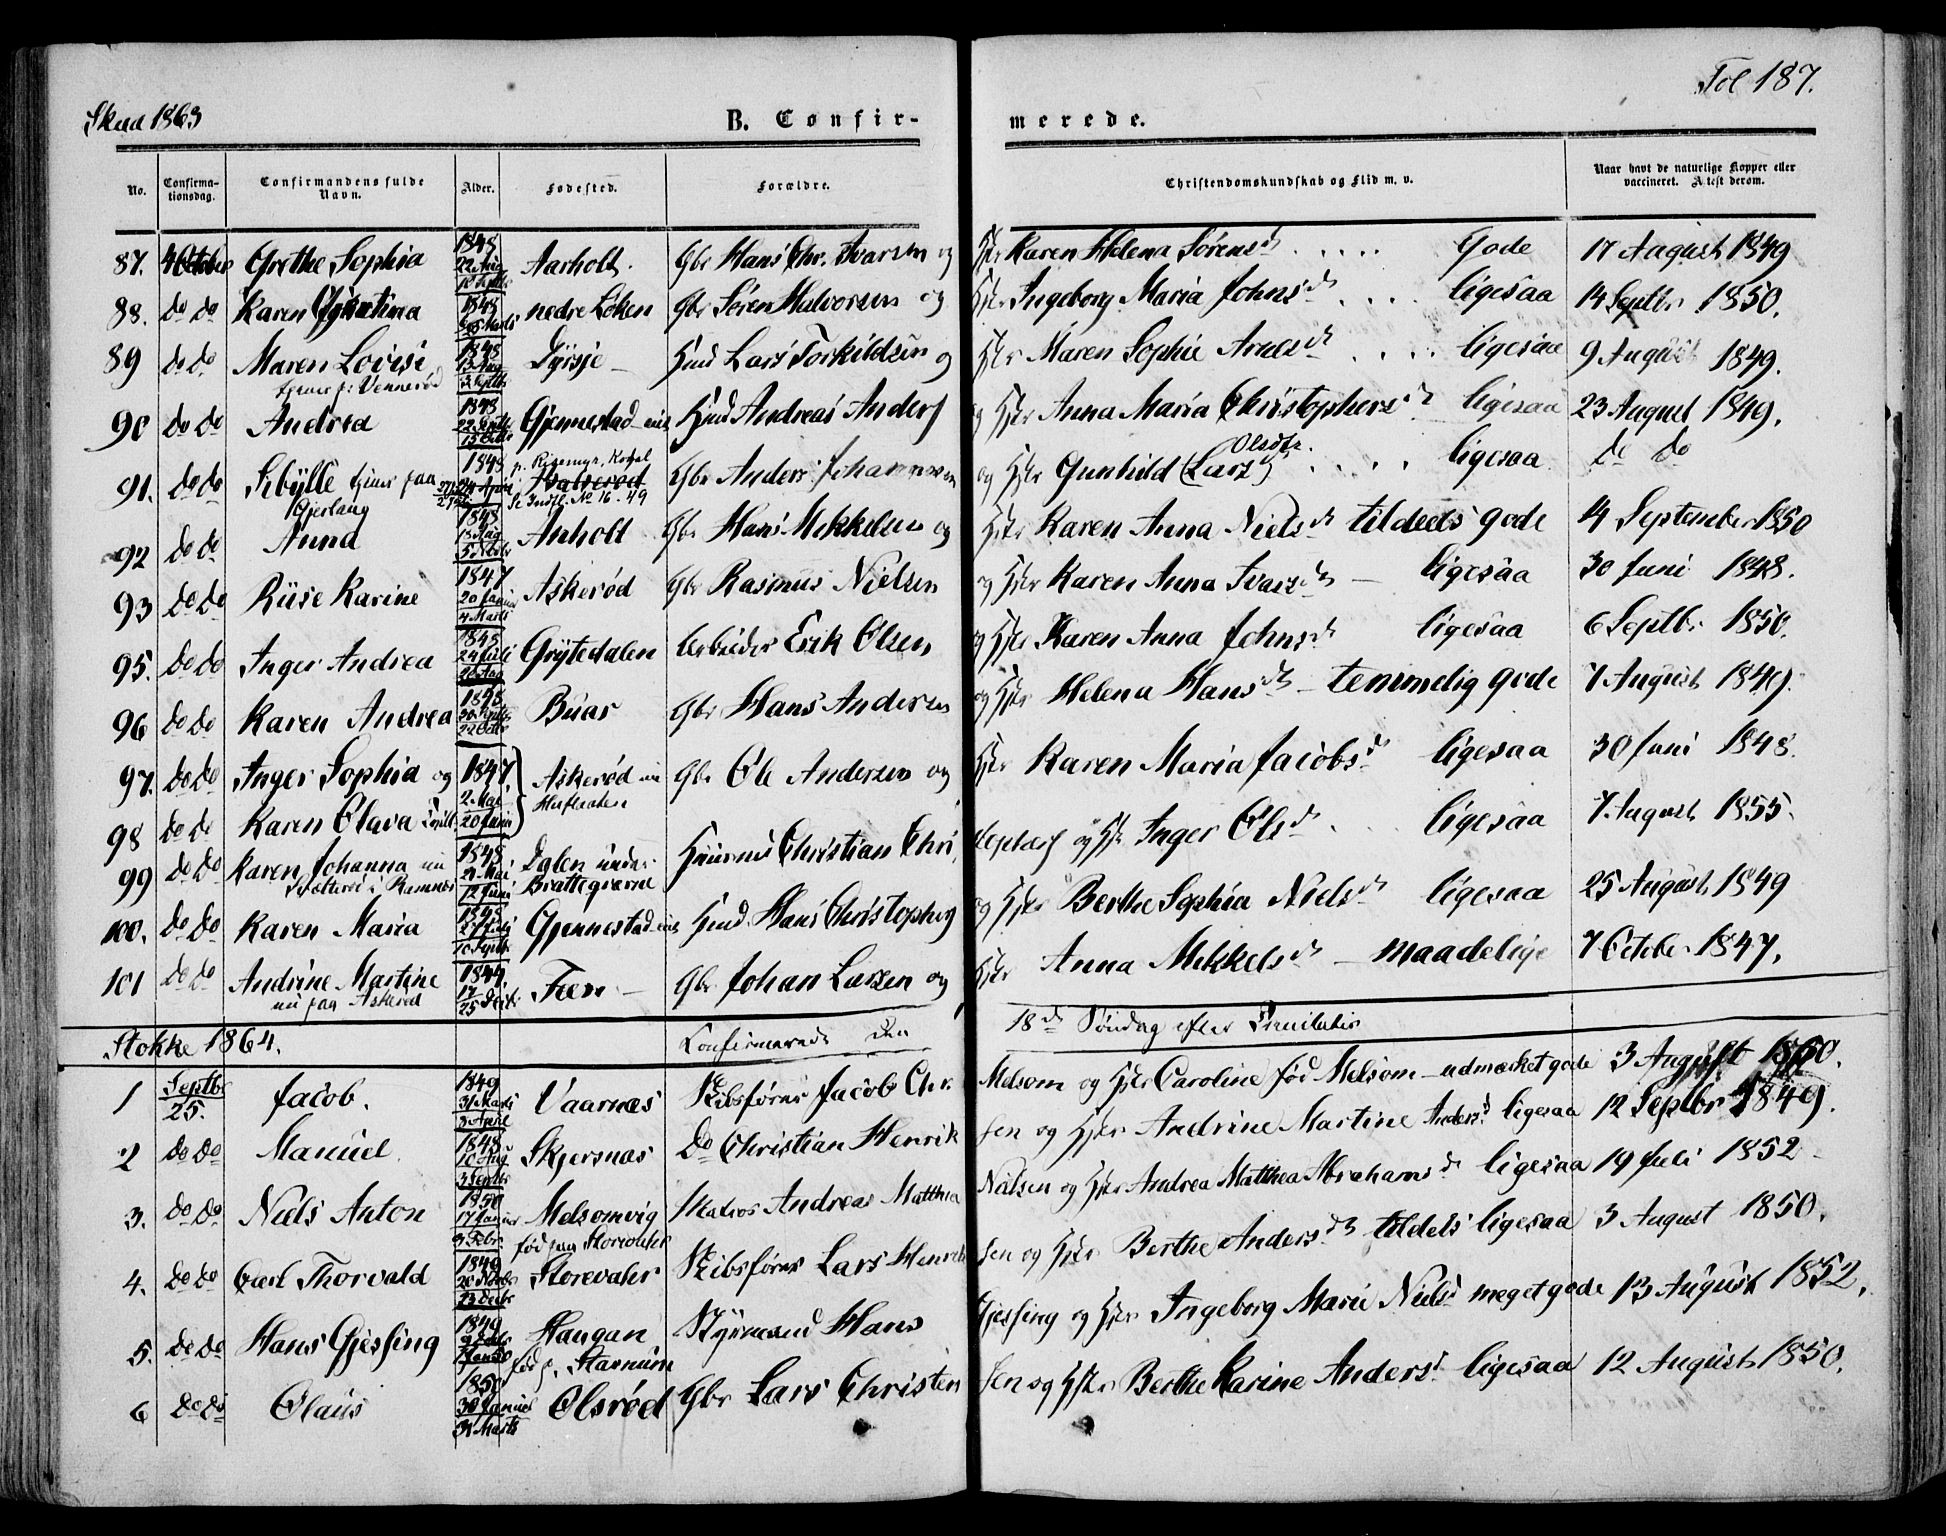 Fol 187.
1863
B. Confir-
merede.
No.
Confirma-
tionsdag.
Confirmandens fulde
Navn.
Alder.
Fødested.
Forældre.
Christendomskundskab og Flid m. v.
Naar havt de naturlige Kopper eller
vaccineret. Attest derom.
87. 4 October Grethe Sophia 1848 22 Aug Aarholt. Gbr Hans Chr. Ivarsen og Hstr Karen Helena Sørensd. Gode 17 August 1849
88. do do Karen 1848 nedre Løken Gbr Søren Halvorsen og Hstr Ingeborg Maria Johnsd. ligesaa 14 Septbr 1850.
89 do do Maren Lovise 1848 13 Aug 3 Septbr Dyrsje Hmd Lars Torkildsen og Hstr Maren Sophie Arnesd. ligesaa 9 August 1849.
tjener p: Vennerød
90 do do Andrea 1848 Gjennestad eie Hmd Andreas Anders og Hstr Anna Maria Christophersd. ligesaa 23 August 1849.
91. do do Sibylle tjener paa Gjerlaug 1848 Gbr Anders Johannesen og Hstr Gunhild (Lars) Olsdtr. ligesaa do do
Se Indfl. No 16. 49
92 do do Anna 1848 Anholt Gbr Hans Mikkelsen og Hstr Karen Anna Nielsd. tildeels gode 14 September 1850
93 do do Rüse Karine 1847 20 Januar 4 Marts Askerød Gbr Rasmus Nielsen og Hstr Karen Anna Ivarsd. ligesaa 30 Juni 1848.
95. do do Inger Andrea 1848 24 Juli Grytedalen Arbeider Erik Olsen og Hstr Karen Anna Johnsd. ligesaa 6 Septbr 1850.
96 do do Karen Andrea 1848 Buar Gbr Hans Andersen og Hstr Helena Hansd. temmelig gode 7 August 1849.
97. do do Inger Sophia og 1847. 2 Mai 20 Juni Askerød Gbr Ole Andersen og Hstr Karen Maria Jacobsd. ligesaa 30 Juni 1848.
98 do do Karen Olava
99 do do Karen Johanna 1848 21 Mai 12 Juni Dalen under Brattegjerne Christian Chri og Hstr Inger Olsd. ligesaa 7 August 1855.
100. do do Karen Maria 1848 27 Juli Gjennestad eie Hmd Hans Christophers og Hstr Berthe Sophia Nielsd. ligesaa 25 August 1849
101 do do Andrine Martine 17 25 Decbr Fæn Gbr Johan Larsen og Hstr Anna Mikkelsd. maadelige 7 October 1847.
nu paa Askerød
Stokke 1864. Confirmerede den 18de Søndag efter Trinitatis
1 Septbr 25. Jacob. 1849 31 Marts 3 April Vaarnæs Skibsfører Jacob Chr. Melsom og Hstr Caroline fød Melsom udmærket gode 3 August 1850.
2 do do Manuel 1848 10 Aug 3 Septbr Skjersnæs do Christian Henriksen og Hstr Andrine Martine Andersd. ligesaa 12 Septbr 1849.
3. do do Niels Anton 1850 17 Januar 3 Febr. Melsomvig Matros Andreas Matthia Nielsen og Hstr Andrea Matthea Abrahamsd. ligesaa 19 Juli 1852
4. do do Carl Thorvald 1849 Storevahr Skibsfører Lars Henriksen og Hstr Berthe Andersd. tildels ligesaa 3 August 1850.
5. do do Hans Gjessing 1849 Haugan Styrmand Hans Gjessing og Hstr Ingeborg Marie Nielsd meget gode 13 August 1852.
6 do do Olaus 1850 30 Januar 31 Marts Olsrød Gbr Lars Christensen og Hstr Berthe Karine Andersd. ligesaa 12 August 1850.